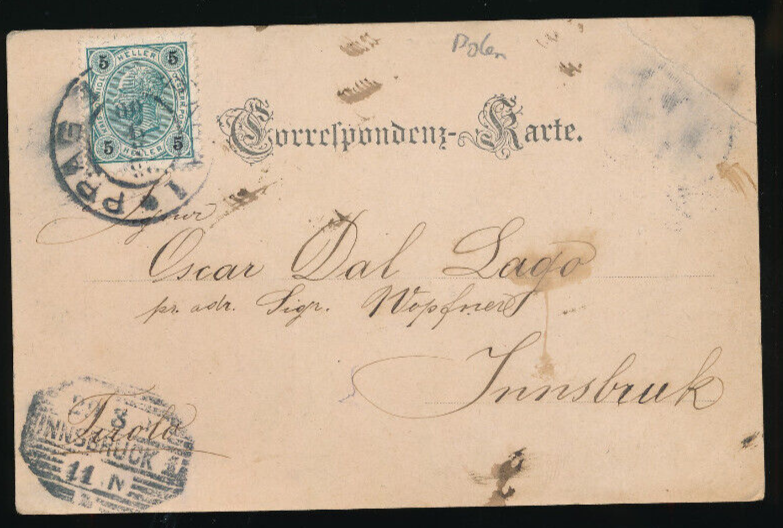 Polen
5 HELLER 5
5 HELLER 5
PRAG 1
Correspondenz-Karte.
Signor
Oscar Dal Lago
pr. adr. Sigr. Wopfner
Innsbruk
Tirolo
8
INNSBRUCK 1
11.N